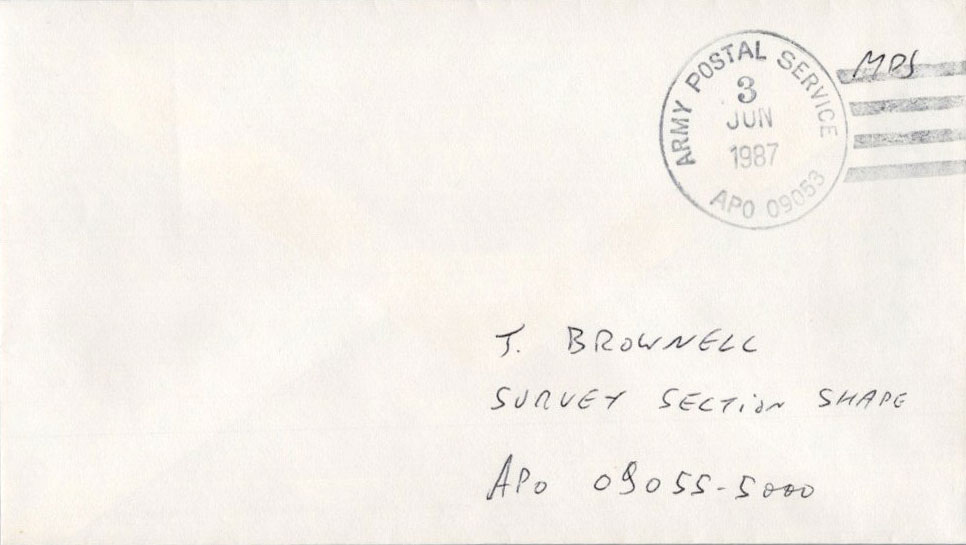 ARMY POSTAL SERVICE
3
JUN
1987
APO 09053
MPS
J. BROWNELL
SURVEY SECTION SHAPE
APO 09055-5000